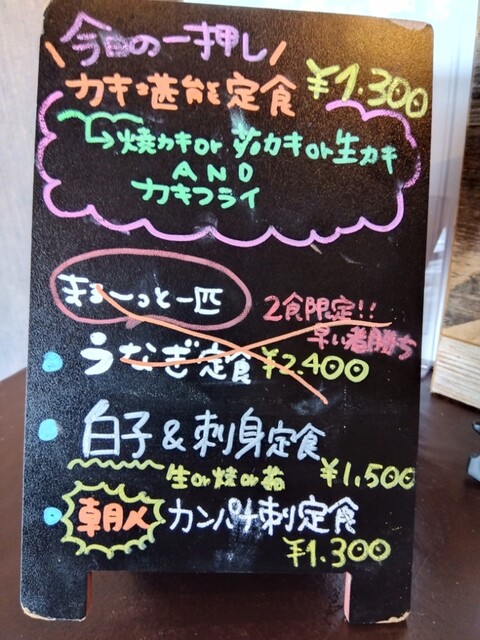 今日の一押し
カキ堪能定食 ¥1.300
↳焼カキor蒸カキor生カキ
AND
カキフライ
まる〜っと一匹
2食限定!!
早い者勝ち
うなぎ定食 ¥2.400
白子&刺身定食
生or焼or蒸 ¥1,500
朝〆 カンパチ刺定食
¥1.300